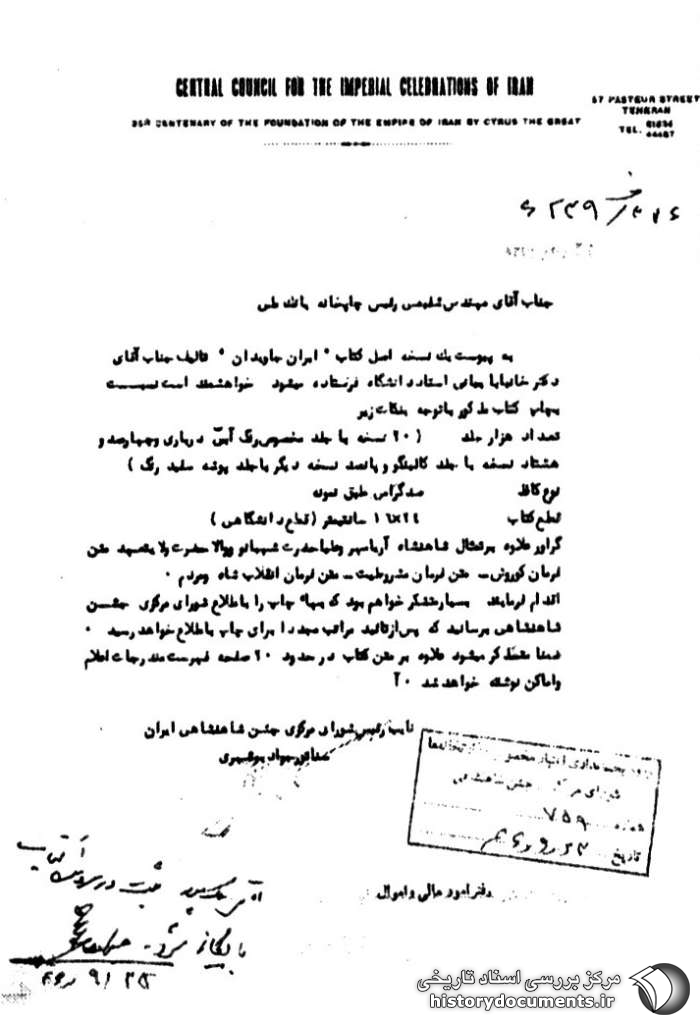 CENTRAL COUNCIL FOR THE IMPERIAL CELEBRATIONS OF IRAN
25th CENTENARY OF THE FOUNDATION OF THE EMPIRE OF IRAN BY CYRUS THE GREAT
67 PASTEUR STREET
TEHERAN
TEL.
جناب آقای مهندس رئیس چاپخانه بانک ملی
به پیوست یک نسخه اصل کتاب " ایران جاویدان " تالیف جناب آقای
دکتر خانبابا بیانی استاد دانشگاه فرستاده میشود خواهشمند است نسبت
بچاپ کتاب مذکور باتوجه بنکات زیر
تعداد هزار جلد ( ۲۰ نسخه با جلد مخصوص رنگ آبی درباری و چهارصد و
هشتاد نسخه با جلد گالینگور و پانصد نسخه دیگر با جلد پوشه سفید رنگ )
نوع کاغذ صد گرامی طبق نمونه
قطع کتاب ۲۴×۱۶ سانتیمتر (قطع دانشگاهی )
گراور علاوه بر تمثال شاهنشاه آریامهر وعلیاحضرت شهبانو ووالاحضرت ولایتعهد متن
فرمان کوروش - متن فرمان مشروطیت - متن فرمان انقلاب شاه ومردم ۰
اقدام فرمایند بسیار متشکر خواهم بود که بهای چاپ را باطلاع شورای مرکزی جشن
شاهنشاهی برسانید که پس از تائید مراتب مجددا برای چاپ باطلاع خواهد رسید ۰
ضمنا متذکر میشود علاوه بر متن کتاب در حدود ۲۰ صفحه فهرست مندرجات اعلام
واماکن نوشته خواهد شد ۰
نایب رئیس شورای مرکزی جشن شاهنشاهی ایران
سناتور جواد بوشهری
شورای مرکزی جشن شاهنشاهی
شماره ۷۵۹
تاریخ
دفتر امور مالی و اموال
مرکز بررسی اسناد تاریخی
historydocuments.ir